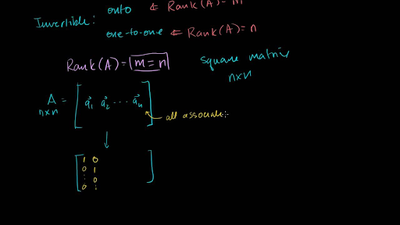 Invertible: onto ⇐ Rank(A) = m
one-to-one ⇐ Rank(A) = n
Rank(A) = m = n square matrix
n×n
A = [ a⃗₁ a⃗₂ ... a⃗ₙ ]
n×n
all associate
1 0
0 1
: 0
0 :